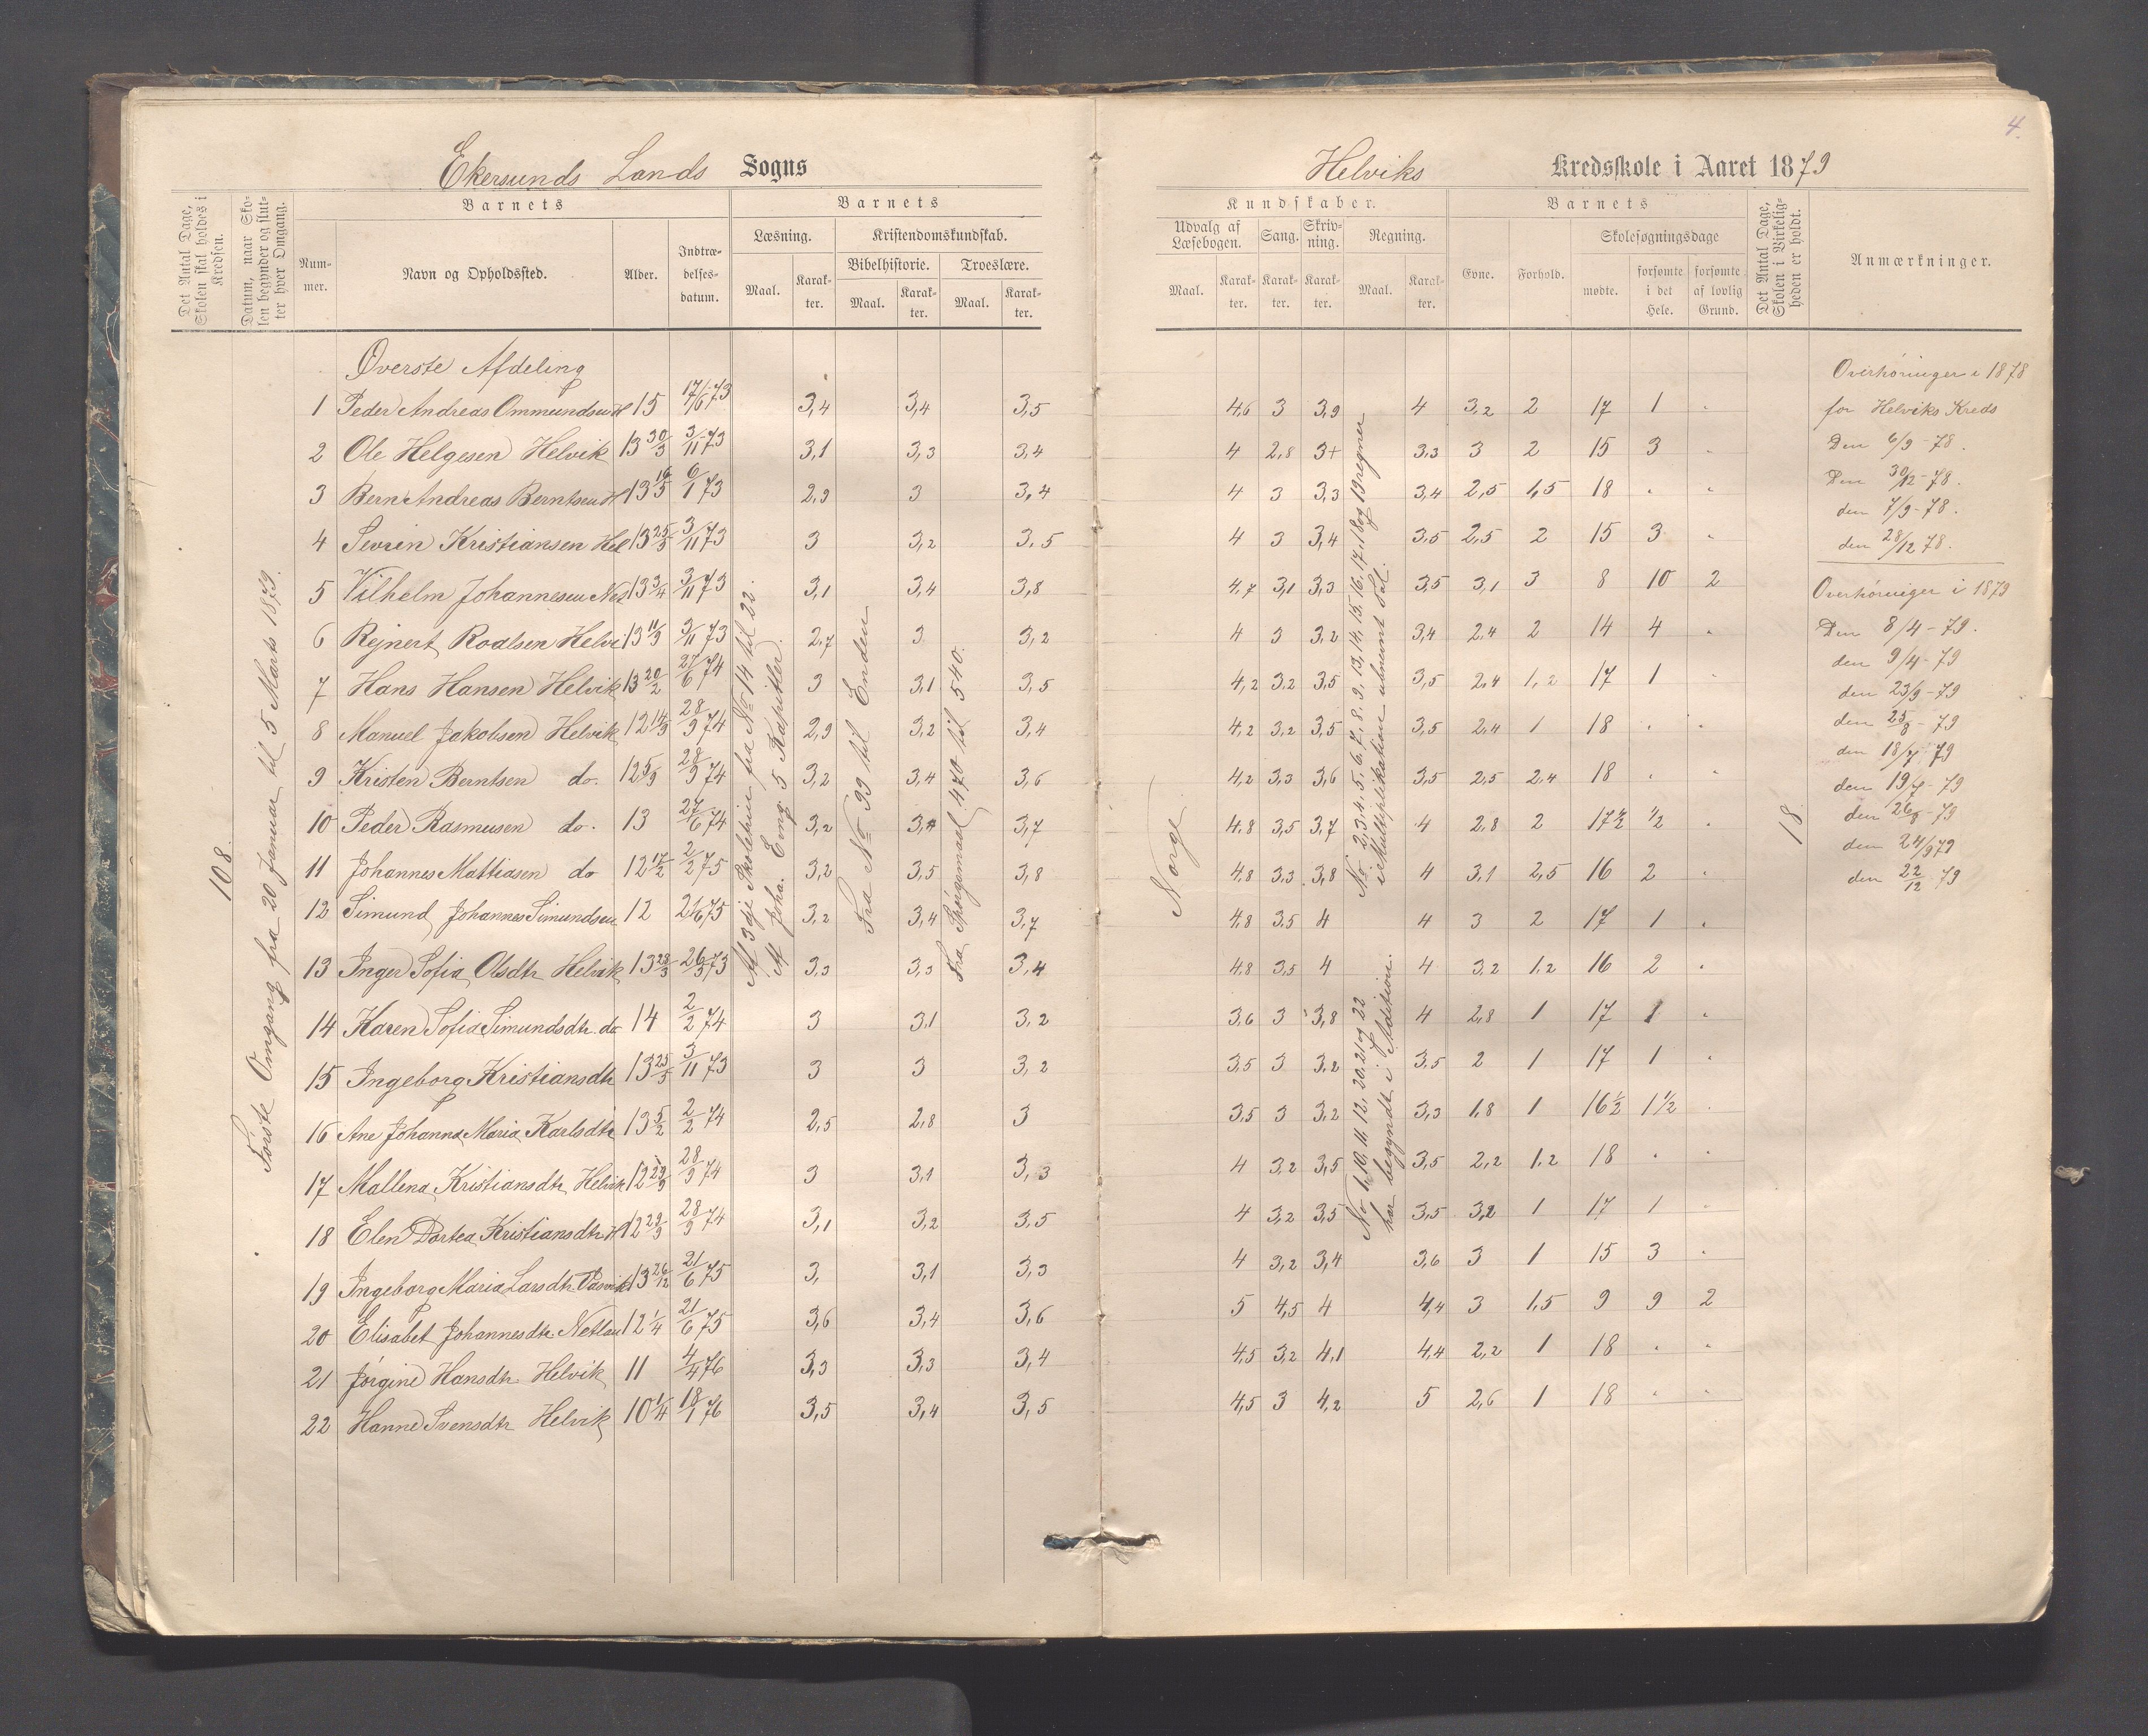 4.
Ekersunds Lands Sogns
Helviks Kredsskole i Aaret 1879
Det Antal Dage, Skolen skal holdes i Kredsen.
Datum, naar Skolen begynder og slutter hver Omgang.
Barnets
Nummer.
Navn og Opholdssted.
Alder.
Indtrædelsesdatum.
Barnets
Læsning.
Maal.
Karakter.
Kristendomskundskab.
Bibelhistorie.
Maal.
Karakter.
Troeslære.
Maal.
Karakter.
Kundskaber.
Udvalg af Læsebogen.
Maal.
Karakter.
Sang.
Karakter.
Skrivning.
Karakter.
Regning.
Maal.
Karakter.
Barnets
Evne.
Forhold.
Skolesøgningsdage
mødte.
forsømte i det Hele.
forsømte af lovlig Grund.
Det Antal Dage, Skolen i Virkeligheden er holdt.
Anmærkninger.
108.
Første Omgang fra 20 Januar til 5 Marts 1879.
Øverste Afdeling
1 Peder Andreas Ommundsen H 15 17/6 73 3,4 3,4 3,5 4,6 3 3,9 4 3,2 2 17 1 "
2 Ole Helgesen Helvik 13 30/3 3/11 73 3,1 3,3 3,4 4 2,8 3+ 3,3 3 2 15 3 "
3 Bern Andreas Berntsen H 13 16/5 6/1 73 2,9 3 3,4 4 3 3,3 3,4 2,5 1,5 18 " "
4 Sevrin Kristiansen Hel 13 25/3 3/11 73 3 3,2 3,5 4 3 3,4 3,5 2,5 2 15 3 "
5 Vilhelm Johannesen Net 13 3/4 3/11 73 3,1 3,4 3,8 4,7 3,1 3,3 3,5 3,1 3 8 10 2
6 Rejnert Roalsen Helvi 13 11/9 3/11 73 2,7 3 3,2 4 3 3,2 3,4 2,4 2 14 4 "
7 Hans Hansen Helvik 13 20/2 27/6 74 3 3,1 3,5 4,2 3,2 3,5 3,5 2,4 1,2 17 1 "
8 Manuel Jakobsen Helvik 12 14/9 28/9 74 2,9 3,2 3,4 4,2 3,2 3,5 3,5 2,4 1 18 " "
9 Kristen Berntsen do. 12 5/9 28/9 74 3,2 3,4 3,6 4,2 3,3 3,6 3,5 2,5 2,4 18 " "
10 Peder Rasmusen do. 13 27/6 74 3,2 3,4 3,7 4,8 3,5 3,7 4 2,8 2 17 1/2 1/2 "
11 Johannes Mattiasen do 12 17/2 2/2 75 3,2 3,5 3,8 4,8 3,3 3,8 4 3,1 2,5 16 2 "
12 Simund Johannes Simundsen 12 21/6 75 3,2 3,4 3,7 4,8 3,5 4 4 3 2 17 1 "
13 Inger Sofia Olsdtr Helvik 13 28/3 26/3 73 3,3 3,3 3,4 4,8 3,5 4 4 3,2 1,2 16 2 "
14 Karen Sofia Simundsdtr. do 14 2/2 74 3 3,1 3,2 3,6 3 3,8 4 2,8 1 17 1 "
15 Ingeborg Kristiansdtr 13 25/3 3/11 73 3 3 3,2 3,5 3 3,2 3,5 2 1 17 1 "
16 Ane Johanna Maria Karlsdtr 13 5/2 2/2 74 2,5 2,8 3 3,5 3 3,2 3,3 1,8 1 16 1/2 1 1/2 "
17 Mallena Kristiansdtr Helvik 12 29/9 28/9 74 3 3,1 3,3 4 3,2 3,5 3,5 2,2 1,2 18 " "
18 Elen Dortea Kristiansdtr H 12 29/9 28/9 74 3,1 3,2 3,5 4 3,2 3,5 3,5 3,2 1 17 1 "
19 Ingeborg Maria Larsdtr 13 26/12 21/6 75 3, 3,1 3,3 4 3,2 3,4 3,6 3 1 15 3 "
20 Elisabet Johannesdtr Netlan 12 1/4 21/6 75 3,6 3,4 3,6 5 4,5 4 4,4 3 1,5 9 9 2
21 Jørgine Hansdtr Helvik 11 4/4 76 3,3 3,3 3,4 4,5 3,2 4,1 4,4 2,2 1 18 " "
22 Hanne Svensdtr Helvik 10 1/4 18/1 76 3,5 3,4 3,5 4,5 3 4,2 5 2,6 1 18 " "
Af 3dje Skoletrin fra No 14 til 22.
Af Joha. Evng. 5 Kapitler.
Fra No 99 til Enden
Fra Spørgsmaal 470 til 540.
Norge
No 2, 3, 4, 5, 6, 7, 8, 9, 13, 14, 15, 16, 17, 18 og 19 regner
i Multiplikation ubnevnt Tal.
No 1, 10, 11, 12, 20, 21 og 22
har begyndt i Addition.
18
Overhøringer i 1878
for Helviks Kreds
Den 6/9 - 78.
Den 30/12 - 78.
den 7/9 - 78.
den 28/12 78.
Overhøringer i 1879
Den 8/4 - 79.
den 9/4 - 79
den 23/9 - 79
den 25/8 - 79
den 18/7 79
den 19/7 - 79
den 26/8 - 79
den 24/9 79
den 22/12 79